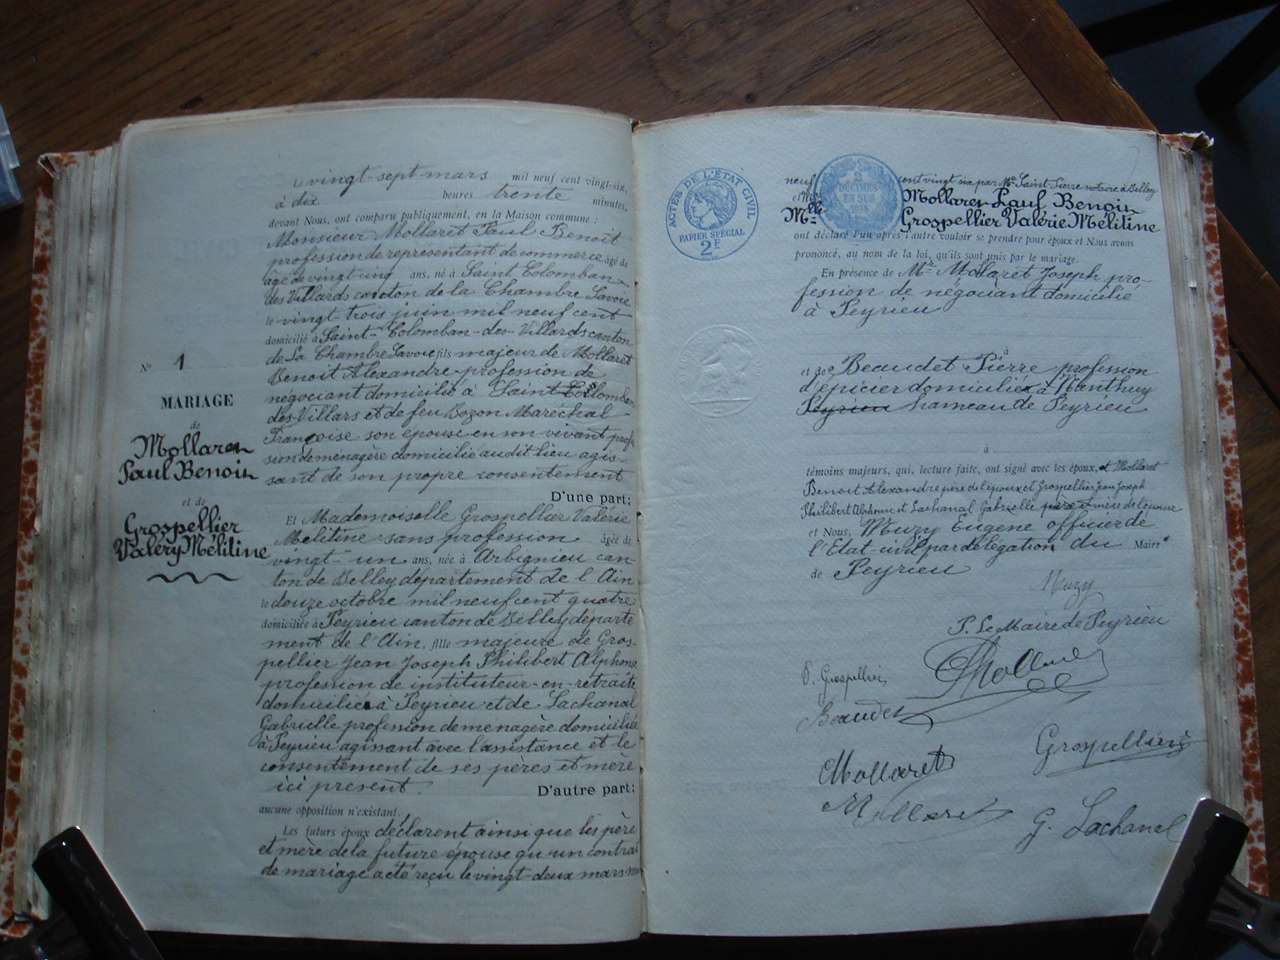 Le vingt-sept mars mil neuf cent vingt-six,
à dix heures trente minutes,
devant Nous, ont comparu publiquement, en la Maison commune :
Monsieur Mollaret Paul Benoit
profession de représentant de commerce âgé de
âgé de vingt cinq ans, né à Saint Colomban
des Villards canton de la Chambre Savoie
le vingt-trois juin mil neuf cent
domicilié à Saint-Colomban-des-Villards canton
de la Chambre Savoie fils majeur de Mollaret
Benoit Alexandre profession de
négociant domicilié à Saint Colomban
des Villars et de feu Bozon Marechal
Françoise son épouse en son vivant profes
sion de ménagère domiciliée audit lieu agis-
sant de son propre consentement
D'une part;
Et Mademoiselle Grospellier Valérie
Mélitine sans profession âgée de
vingt-un ans, née à Arbignieu can-
ton de Belley département de l'Ain
le douze octobre mil neuf cent quatre
domiciliée à Peyrieu canton de Belley départe
ment de l'Ain, fille majeure de Gros-
pellier Jean Joseph Philibert Alphonse
profession de instituteur-en-retraite
domicilié à Peyrieu et de Lachanal
Gabrielle profession de menagère domiciliée
à Peyrieu agissant avec l'assistance et le
consentement de ses pères et mère
ici présent. D'autre part;
aucune opposition n'existant.
Les futurs époux déclarent ainsi que les père
et mère de la future épouse qu'un contrat
de mariage a été reçu le vingt-deux mars mil
N° 1
MARIAGE
de
Mollaret
Paul Benoit
et de
Grospellier
Valéry Mélitine
ACTES DE L'ÉTAT CIVIL
PAPIER SPÉCIAL
2F
2
DÉCIMES
EN SUS
neuf cent vingt six par Me Saint-Pierre notaire à Belley
Mollaret Paul Benoit
et Mlle Grospellier Valérie Mélitine
ont déclaré l'un après l'autre vouloir se prendre pour époux et Nous avons
prononcé, au nom de la loi, qu'ils sont unis par le mariage.
En présence de Mr Mollaret Joseph pro-
fession de négociant domicilié
à Peyrieu
et de Beaudet Pierre profession
d'épicier domicilié à Wanthuy
Peyrieu hameau de Peyrieu
à
témoins majeurs, qui, lecture faite, ont signé avec les époux, et Mollaret
Benoit Alexandre père de l'époux et Grospellier Jean Joseph
Philibert Alphonse et Lachanal Gabrielle père et mère de l'épouse
et Nous, Muzy Eugène officier de
l'Etat-civil par délégation du Maire
de Peyrieu
Muzy
P. Le Maire de Peyrieu
Mollaret
V. Grospellier
Beaudet
Grospellier
Mollaret
Mollaret
G. Lachanal